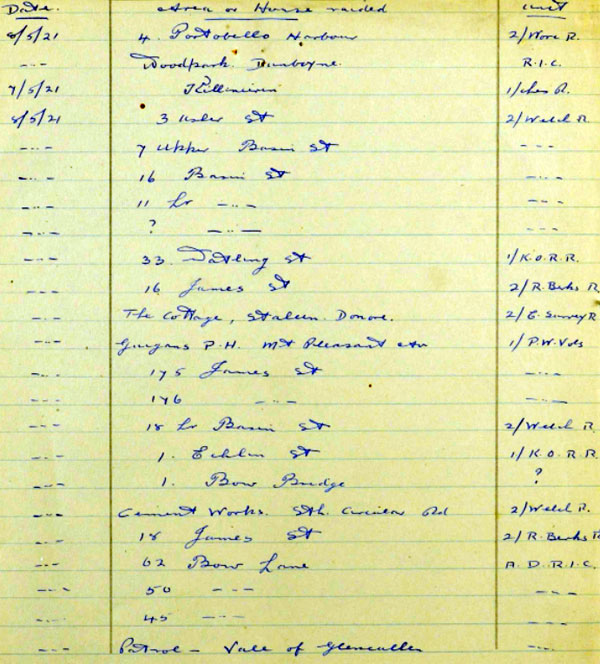 Date. Area or House raided Unit
8/5/21 4. Portobello Harbour 2/Worc R.
-"- Woodpark Dunboyne. R.I.C.
7/5/21 Killiniun 1/Ches R.
8/5/21 3 Usher St 2/Welch R
-"- 7 Upper Basin St -"-
-"- 16 Basin St -"-
-"- 11 Lr -"- -"-
-"- ? -"- -"-
-"- 33. Watling St 1/K.O.R.R.
-"- 16 James St 2/R.Berks R.
-"- The Cottage, Staleen. Donore. 2/E.Surrey R
-"- P.H. Mt Pleasant Ave 1/P.W.Vols
-"- 175 James St -"-
-"- 176 -"- -"-
-"- 18 Lr Basin St 2/Welch R.
-"- 1. Echlin St 1/K.O.R.R.
-"- 1. Bow Bridge ?
-"- Cement Works. Sth. Circular Rd 2/Welch R.
-"- 18 James St 2/R.Berks R
-"- 62 Bow Lane A.D.R.I.C.
-"- 50 -"- -"-
-"- 45 -"- -"-
-"- Patrol – Vale of Glencullen -"-